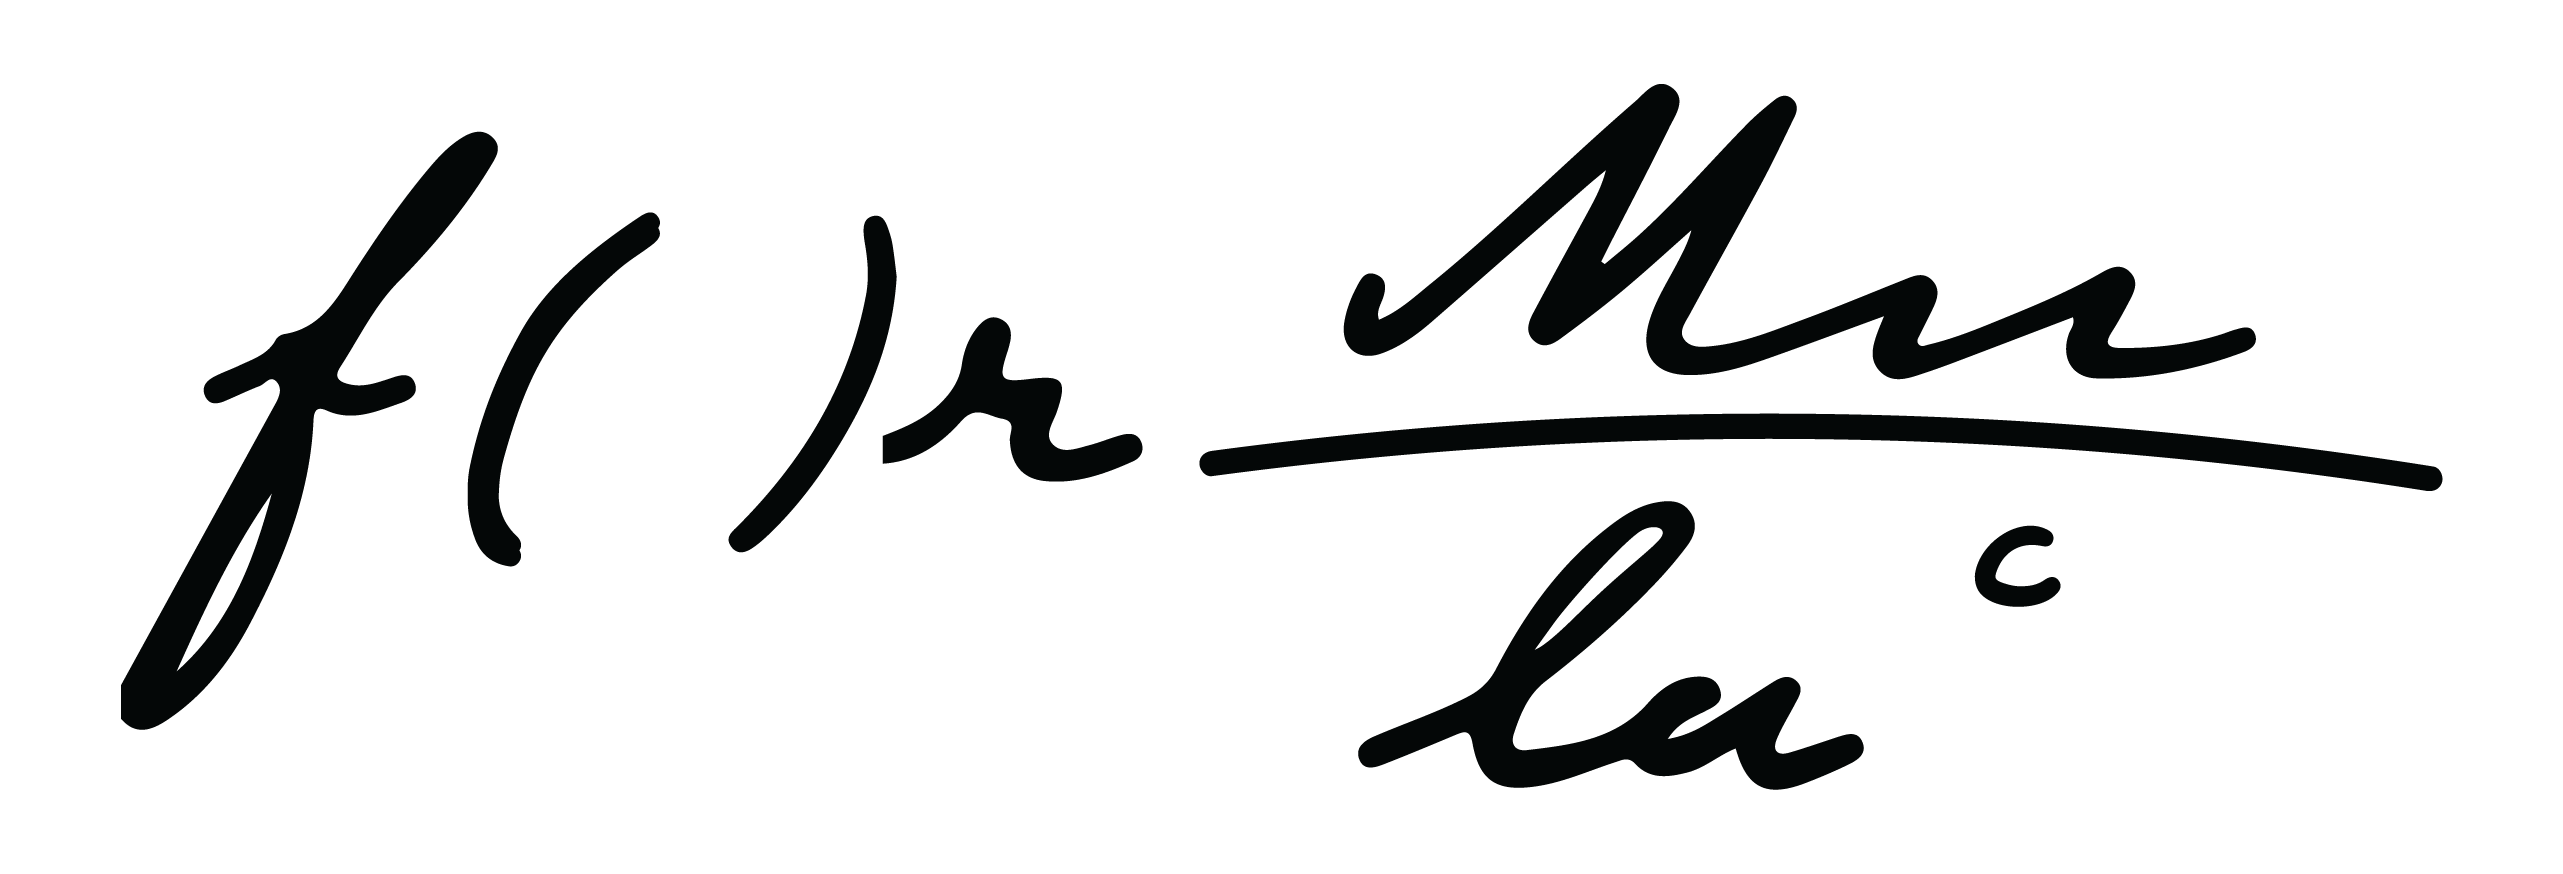 f( )r Mu
la c